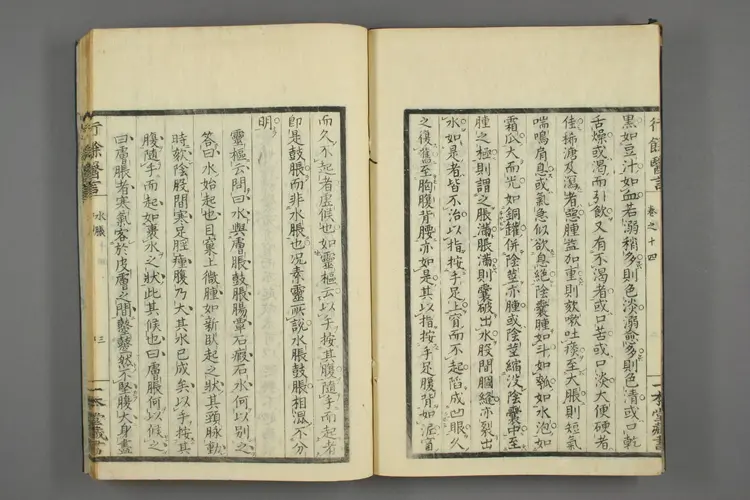 行餘醫言 卷之十四 一本堂藏書
黑如豆汁如血若溺稍多則色淡溺愈多則色清或口乾
舌燥或渴而引飲又有不渴者或口苦或口淡大便硬者
佳稀溏及瀉者惡腫益加重則欬嗽吐痰至大脹則短氣
喘鳴肩息或氣急似欲息絕陰囊腫如斗如瓠如水泡如
霜瓜大而光如銅罐併陰莖亦腫或陰莖縮沒陰囊中至
腫之極則謂之脹滿脹滿則囊破出水股間膕縫亦裂出
水如是者皆不治以指按手足上窅而不起陷成凹眼久
之復舊至胸腹背腰亦如是其以指按手足腹背如泥窅
而久不起者虛候也如靈樞云以手按其腹隨手而起者
即是鼓脹而非水脹也況素靈所說水脹鼓脹相混不分
明
靈樞云問曰水與膚脹鼓脹腸覃石瘕石水何以別之
答曰水始起也目窠上微腫如新臥起之狀其頸脉動
時欬陰股間寒足脛瘇腹乃大其水已成矣以手按其
腹隨手而起如裹水之狀此其候也曰膚脹何以候之
曰膚脹者寒氣客於皮膚之間鼟鼟然不堅腹大身盡
行餘醫言 水脹 三 一本堂藏書